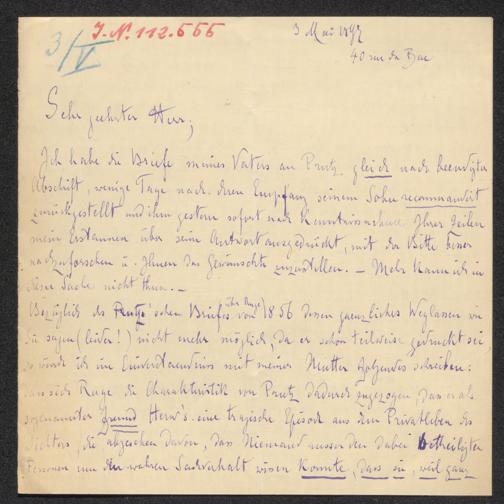 J.N. 112.555
3/V
3 Mai 1892
40 rue du Bac
Sehr geehrter Herr,
Ich habe die Briefe meines Vaters an Prutz gleich nach beendigter
Abschrift, wenige Tage nach deren Empfang seinem Sohn recommandirt
zurückgestellt und ihm gestern sofort nach Kenntnissnahme Ihrer Zeilen
mein Erstaunen über seine Antwort ausgedrückt, mit der Bitte besser
nachzuforschen u. Ihnen das Gewünschte zuzustellen. – Mehr kann ich in
dieser Sache nicht thun. –
Bezüglich des Prutz'schen Briefes über Ruge von 1856 dessen gaenzliches Weglassen wie
Sie sagen (leider!) nicht mehr möglich, da er schon teilweise gedruckt sei
so würde ich im Einverstaendniss mit meiner Mutter folgendes schreiben:
dass sich Ruge die Charakteristik von Prutz dadurch zugezogen, dass er als
sogenannter Freund Herw's. eine tragische Episode aus dem Privatleben des
Dichters, die abgesehen davon, dass Niemand ausser den dabei betheiligten
Personen um den wahren Sachverhalt wissen konnte, dass sie, weil ganz